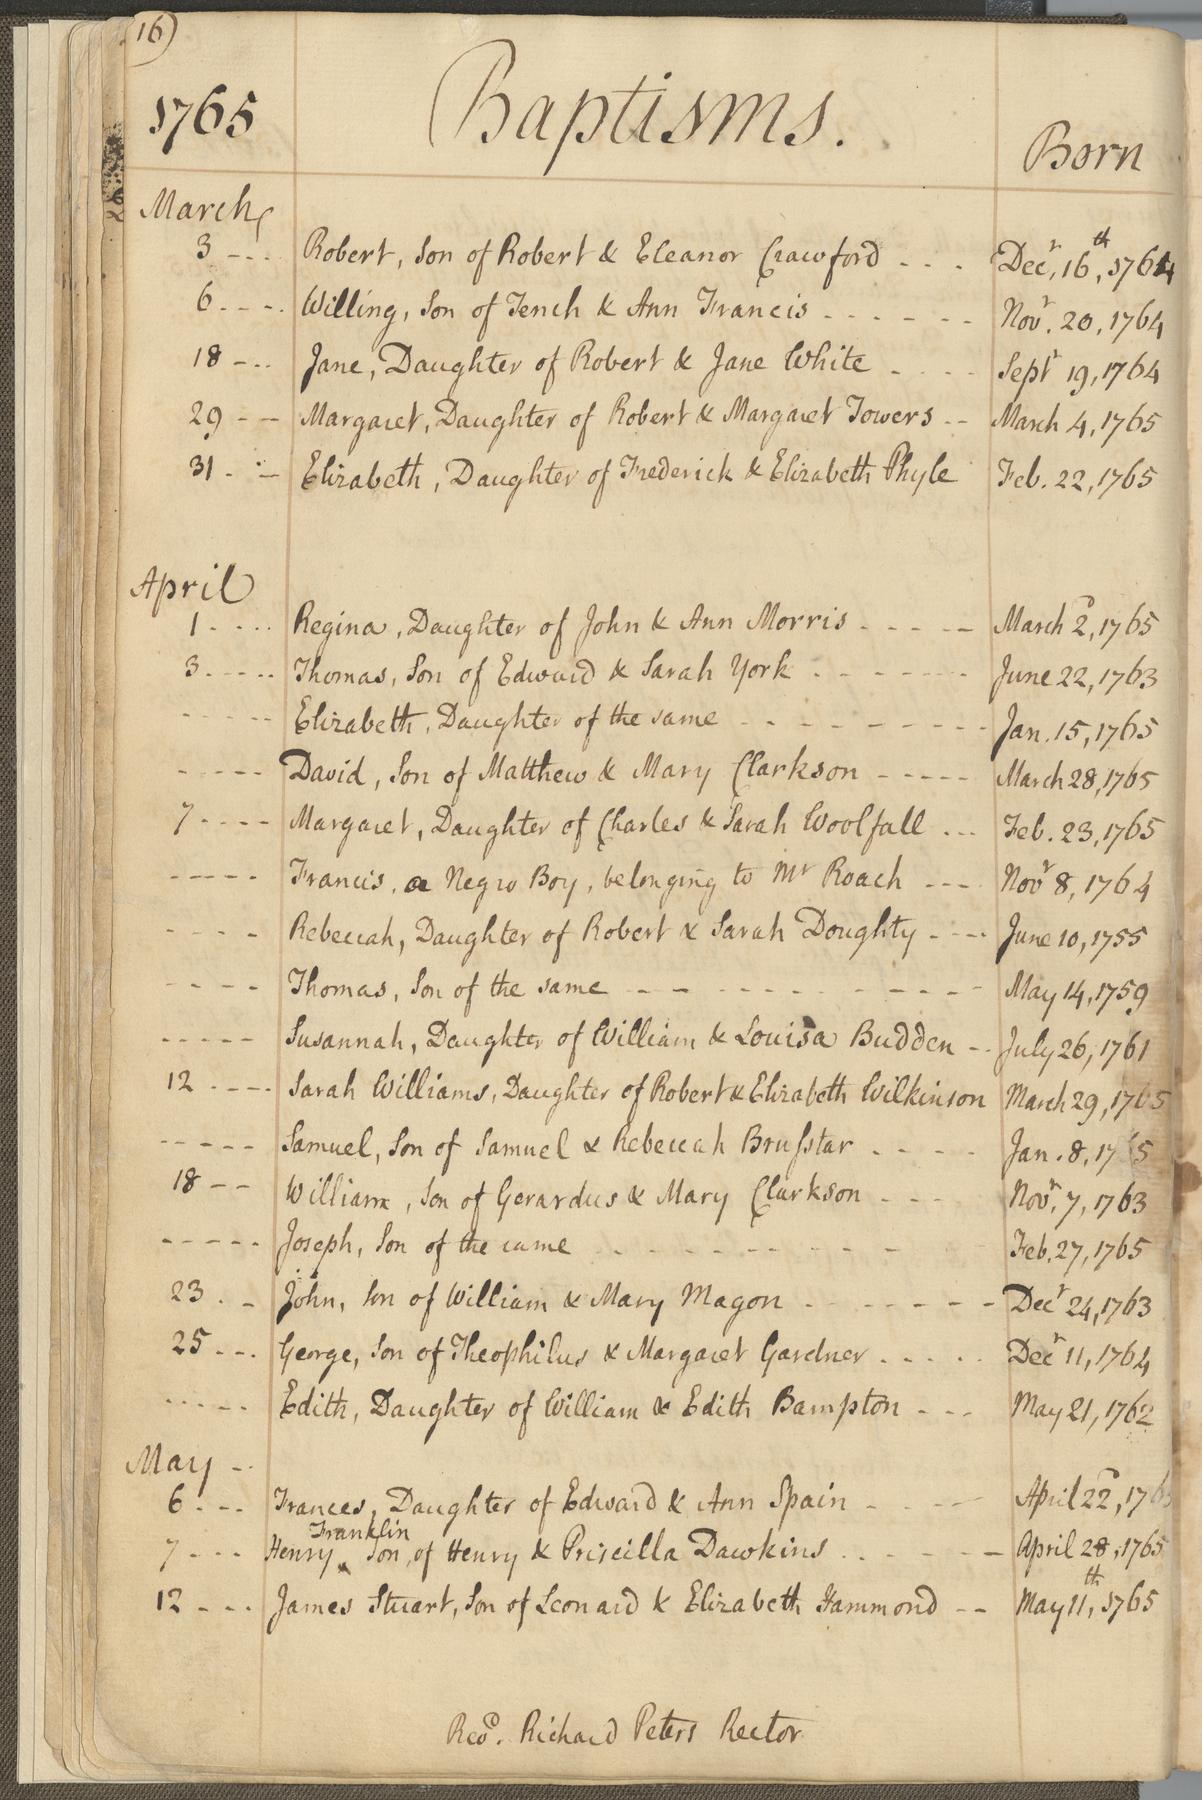 16)
1765 Baptisms. Born
March
3 --- Robert, Son of Robert & Eleanor Crawford - - - Decr, 16th, 1764
6 ---- Willing, Son of Tench & Ann Francis ------ Novr. 20, 1764
18 --- Jane, Daughter of Robert & Jane White ---- Septr 19, 1764
29 -- Margaret, Daughter of Robert & Margaret Towers -- March 4, 1765
31 --- Elizabeth, Daughter of Frederick & Elizabeth Phyle Feb. 22, 1765
April
1 ---- Regina, Daughter of John & Ann Morris ----- March 2d, 1765
3 ----- Thomas, Son of Edward & Sarah York ------- June 22, 1763
----- Elizabeth, Daughter of the same --------- Jan. 15, 1765
----- David, Son of Matthew & Mary Clarkson ----- March 28, 1765
7 ---- Margaret, Daughter of Charles & Sarah Woolfall --- Feb. 23, 1765
----- Francis, a Negro Boy, belonging to Mr Roach --- Novr 8, 1764
---- Rebeccah, Daughter of Robert & Sarah Doughty ---- June 10, 1755
---- Thomas, Son of the same ----------- May 14, 1759
----- Susannah, Daughter of William & Louisa Budden -- July 26, 1761
12 ---- Sarah Williams, Daughter of Robert & Elizabeth Wilkinson March 29, 1765
----- Samuel, Son of Samuel & Rebeccah Bruſstar ---- Jan. 8, 1765
18 -- William, Son of Gerardus & Mary Clarkson --- Novr. 7, 1763
----- Joseph, Son of the same -------- Feb. 27, 1765
23 -- John, Son of William & Mary Magon ------- Decr 24, 1763
25 --- George, Son of Theophilus & Margaret Gardner ----- Decr 11, 1764
----- Edith, Daughter of William & Edith Bampton --- May 21, 1762
May --
6 --- Frances, Daughter of Edward & Ann Spain ---- April 22d, 1765
Franklin
7 --- Henry ^ Son of Henry & Priscilla Dawkins ------ April 28, 1765
12 --- James Stuart, Son of Leonard & Elizabeth Hammond -- May 11th, 1765
Revd. Richard Peters Rector